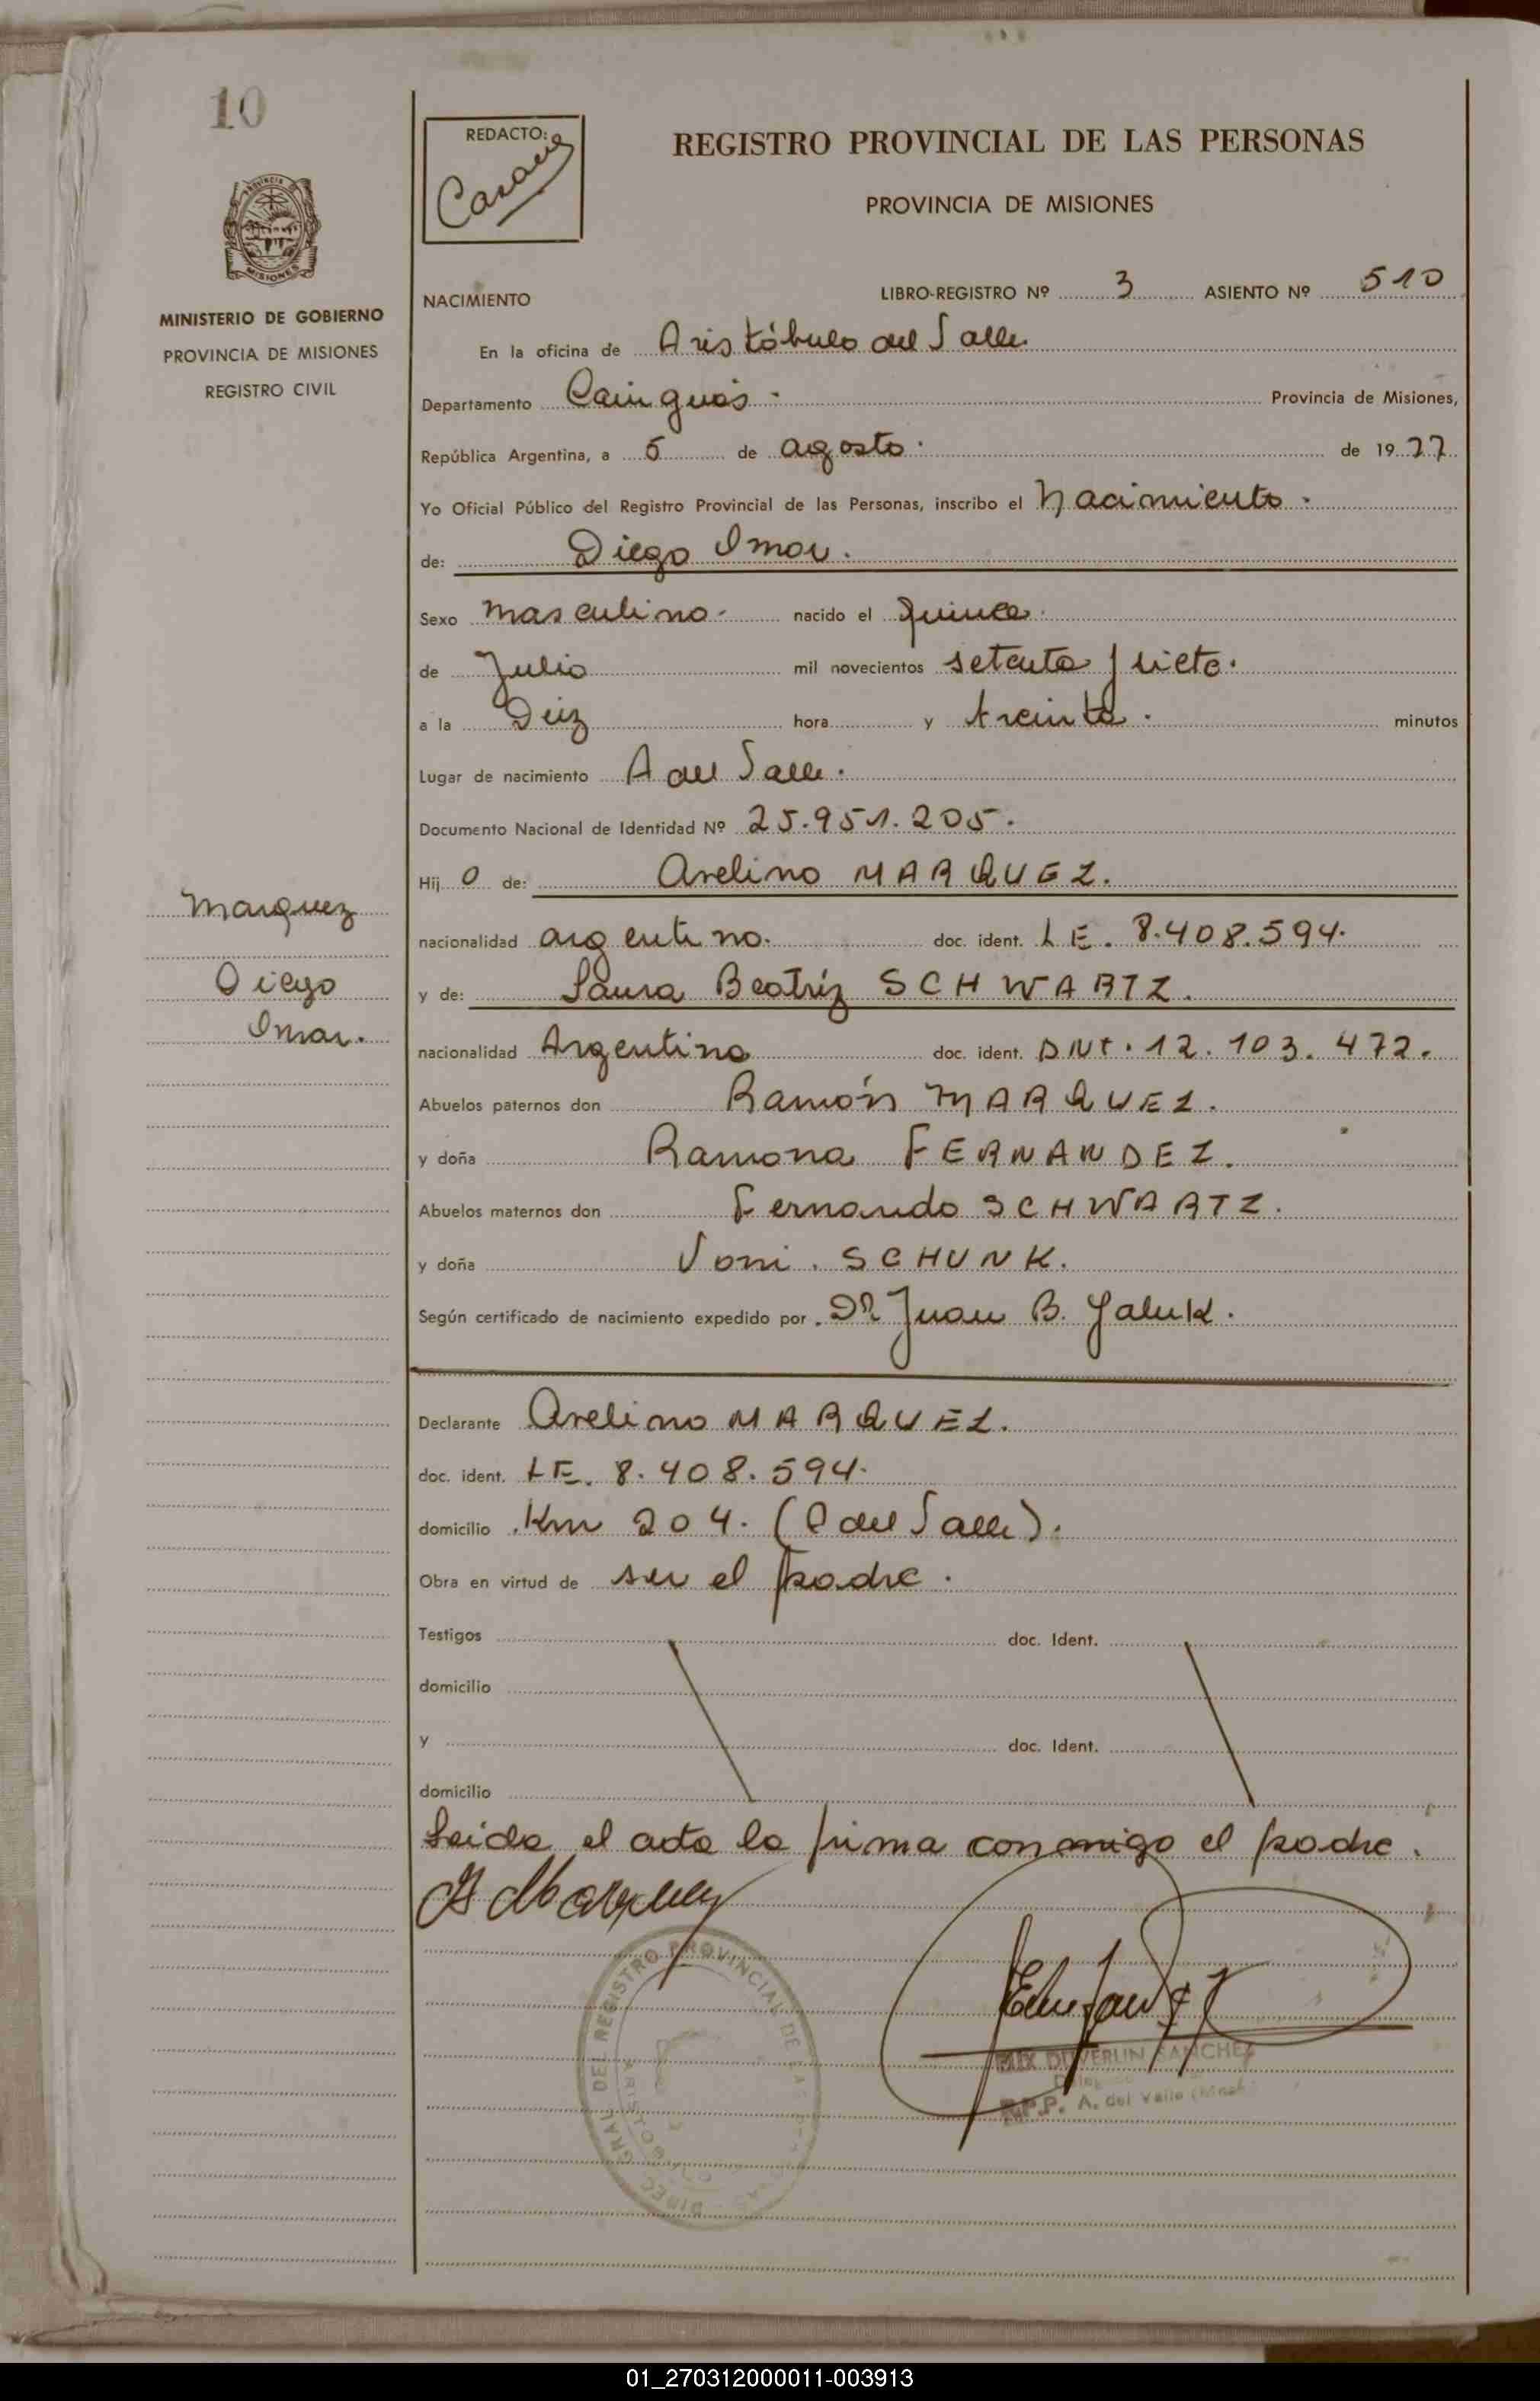 10
REDACTO:
REGISTRO PROVINCIAL DE LAS PERSONAS
PROVINCIA DE MISIONES
MISIONES
MINISTERIO DE GOBIERNO
PROVINCIA DE MISIONES
REGISTRO CIVIL
NACIMIENTO LIBRO-REGISTRO Nº 3 ASIENTO Nº 510
En la oficina de Aristóbulo del Valle
Departamento Cainguás. Provincia de Misiones,
República Argentina, a 5 de agosto. de 1977.
Yo Oficial Público del Registro Provincial de las Personas, inscribo el Nacimiento.
de: Diego Omar.
Sexo masculino. nacido el quince.
de Julio mil novecientos setenta y siete.
a la Diez hora y treinta. minutos
Lugar de nacimiento A del Valle.
Documento Nacional de Identidad Nº 25.951.205.
Hij o de: Avelino MARQUEZ.
nacionalidad argentino. doc. ident. LE. 8.408.594.
y de: Laura Beatríz SCHWARTZ.
nacionalidad Argentina doc. ident. DNI. 12.103.472.
Abuelos paternos don Ramón MARQUEZ.
y doña Ramona FERNANDEZ.
Abuelos maternos don Fernando SCHWARTZ.
y doña Voni. SCHUNK.
Según certificado de nacimiento expedido por Dr Juan B. Yaluk.
Marquez
Diego
Omar.
Declarante Avelino MARQUEZ.
doc. ident. LE. 8.408.594.
domicilio Km 204. (A del Valle).
Obra en virtud de ser el padre.
Testigos doc. Ident.
domicilio
y doc. Ident.
domicilio
Leida el acta la firma conmigo el padre.
A Marquez
DIREC. GRAL DEL REGISTRO PROVINCIAL DE LAS
DUVERLIN SANCHEZ
R.P.P. A. del Valle
01_270312000011-003913